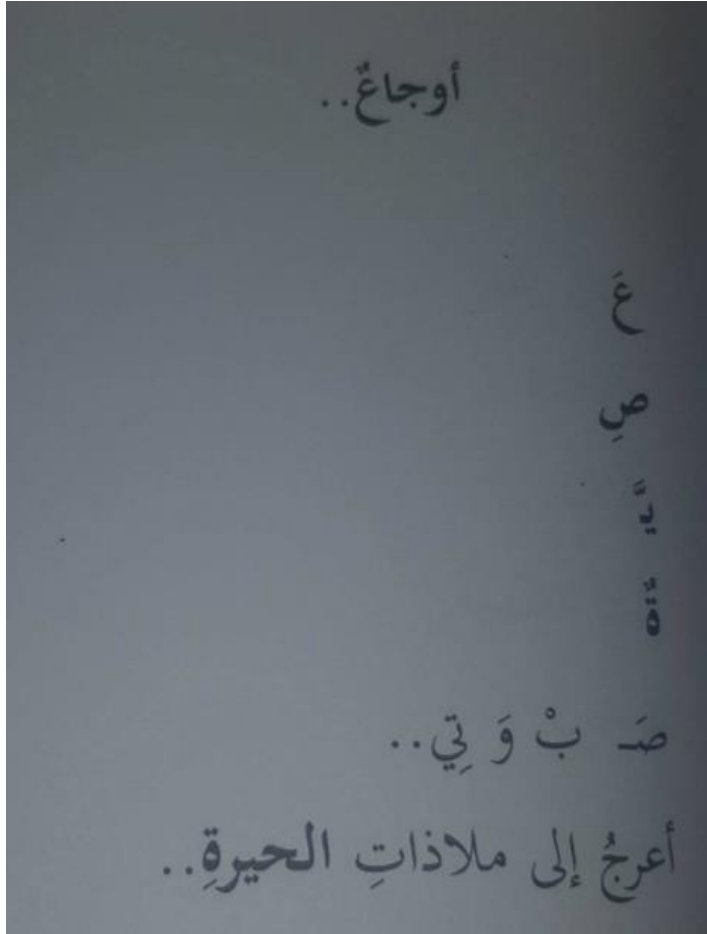 أوجاعٌ..
عَ
صِ
يَّ
ةٌ
صَـ بْ وَ تِي..
أعرجُ إلى ملاذاتِ الحيرةِ..